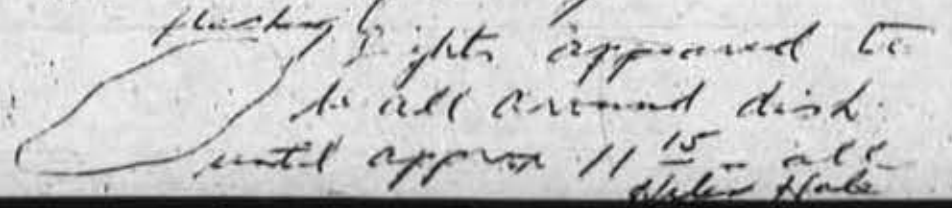 flashing lights appeared to
be all around disk.
until approx 11 15 - all